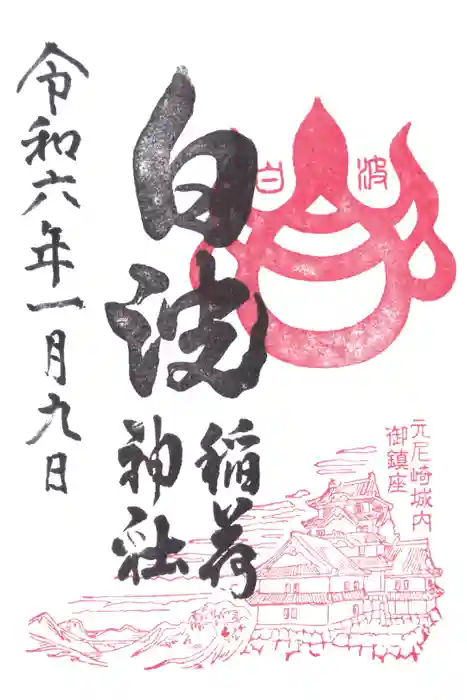 元尼崎城内
御鎮座
白波
白波
稲荷
神社
令和六年一月九日